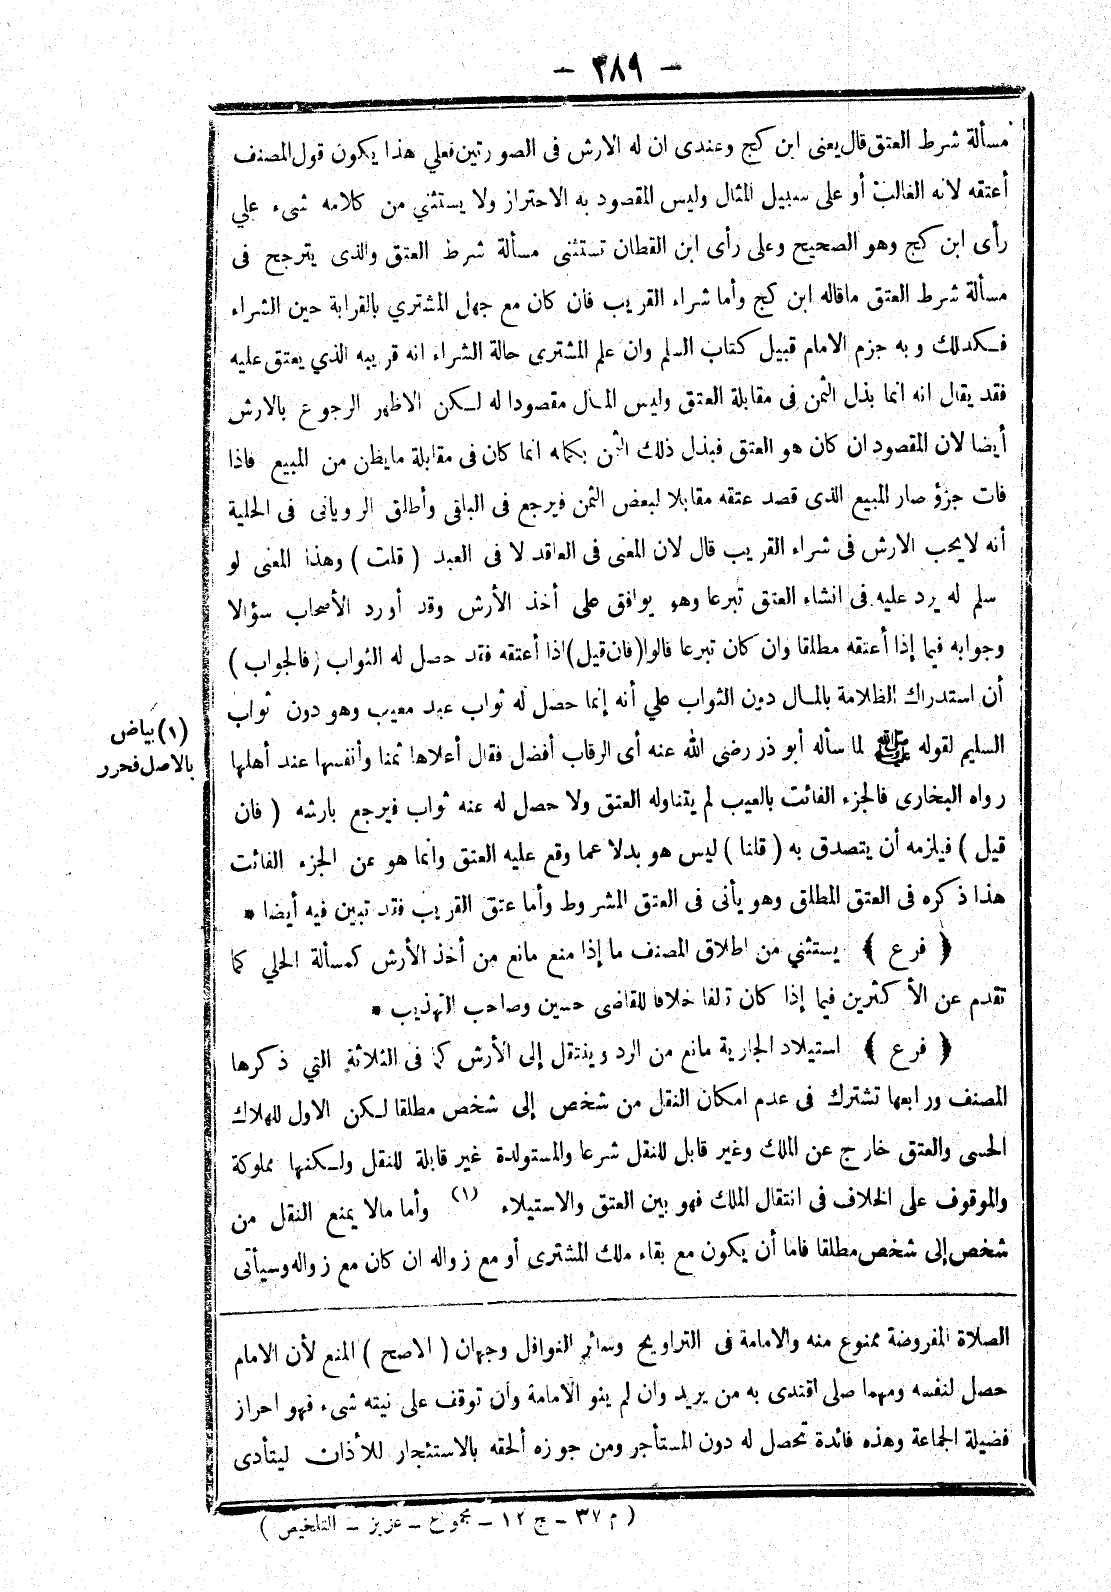 - ٢٨٩ -
مسألة شرط العتق قال يعنى ابن كج وعندى ان له الارش فى الصورتين فعلي هذا يكون قول المصنف
أعتقه لانه الغالب أو على سبيل المثال وليس المقصود به الاحتراز ولا يستثني من كلامه شىء علي
رأى ابن كج وهو الصحيح وعلى رأى ابن القطان تستثنى مسألة شرط العتق والذى يترجح فى
مسألة شرط العتق ماقاله ابن كج وأما شراء القريب فان كان مع جهل المشتري بالقرابة حين الشراء
فكذلك وبه جزم الامام قبيل كتاب السلم وان علم المشترى حالة الشراء انه قريبه الذي يعتق عليه
فقد يقال انه انما بذل الثمن فى مقابلة العتق وليس المال مقصودا له لكن الاظهر الرجوع بالارش
أيضا لان المقصود ان كان هو العتق فبذل ذلك الثمن بكماله انما كان فى مقابلة مايظن من المبيع فاذا
فات جزؤ صار المبيع الذى قصد عتقه مقابلا لبعض الثمن فيرجع فى الباقى وأطلق الرويانى فى الحلية
أنه لايجب الارش فى شراء القريب قال لان المعنى فى العاقد لا فى العبد ( قلت ) وهذا المعنى لو
سلم له يرد عليه فى انشاء العتق تبرعا وهو يوافق على أخذ الأرش وقد أورد الأصحاب سؤالا
وجوابه فيما إذا أعتقه مطلقا وان كان تبرعا قالوا (فان قيل) اذا أعتقه فقد حصل له الثواب (فالجواب)
أن استدراك الظلامة بالمال دون الثواب علي أنه إنما حصل له ثواب عبد معيب وهو دون ثواب
السليم لقوله ﷺ لما سأله أبو ذر رضي الله عنه أى الرقاب أفضل فقال أعلاها ثمنا وأنفسها عند أهلها
رواه البخارى فالجزء الفائت بالعيب لم يتناوله العتق ولا حصل له عنه ثواب فيرجع بارشه ( فان
قيل ) فيلزمه أن يتصدق به ( قلنا ) ليس هو بدلا عما وقع عليه العتق وانما هو عن الجزء الفائت
هذا ذكره فى العتق المطلق وهو يأتى فى العتق المشروط وأما عتق القريب فقد تبين فيه أيضا *
﴿ فرع ﴾ يستثني من اطلاق المصنف ما إذا منع مانع من أخذ الأرش كمسألة الحلي كما
تقدم عن الأكثرين فيما إذا كان تالفا خلافا للقاضى حسين وصاحب التهذيب *
﴿ فرع ﴾ استيلاد الجارية مانع من الرد وينتقل إلى الأرش كما فى الثلاثة التي ذكرها
المصنف ورابعها تشترك فى عدم امكان النقل من شخص إلى شخص مطلقا لكن الاول للهلاك
الحسى والعتق خارج عن الملك وغير قابل للنقل شرعا والمستولدة غير قابلة للنقل ولكنها مملوكة
والموقوف على الخلاف فى انتقال الملك فهو بين العتق والاستيلاء (١) وأما مالا يمنع النقل من
شخص إلى شخص مطلقا فاما أن يكون مع بقاء ملك المشترى أو مع زواله ان كان مع زواله وسيأتى
(١) بياض
بالاصل فحرر
الصلاة المفروضة ممنوع منه والامامة فى التراويح وسائر النوافل وجهان ( الاصح ) المنع لأن الامام
حصل لنفسه ومهما صلى اقتدى به من يريد وان لم ينو الامامة وان توقف على نيته شىء فهو احراز
فضيلة الجماعة وهذه فائدة تحصل له دون المستأجر ومن جوزه ألحقه بالاستئجار للأذان ليتأدى
( م ٣٧ - ج ١٢ - مجموع - عزيز - التلخيص )